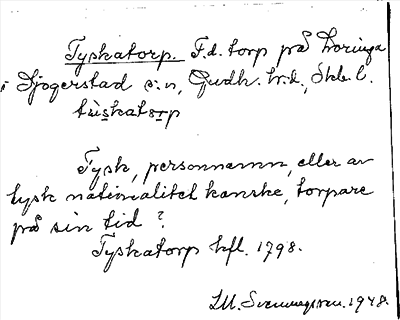 Tyskatorp. F.d. torp på Loringa
i Sjogerstad s:n, Gudh. hd., Skb. l.
tùskatɔrp
Tysk, personnamn, eller av
tysk nationalitet kanske, torpare
på sin tid?
Tyskatorp hfl. 1798.
LM. Svenungsson. 1948.